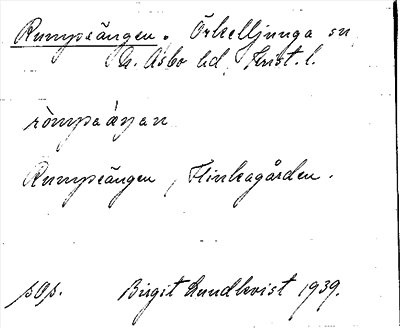 Rumpeängen. Örkelljunga sn
N. Asbo hd, Krist. l.
ròmpaáŋan
Rumpeängen, Flinkagården.
sOp. Birgit Lundkvist 1939.